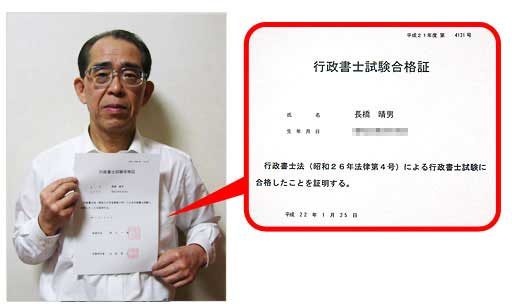 行政書士試験合格証
平成21年度 第 4131号
行政書士試験合格証
氏 名 長橋 晴男
生 年 月 日
行政書士法(昭和26年法律第4号)による行政書士試験に
合格したことを証明する。
平成 22 年 1 月 25 日